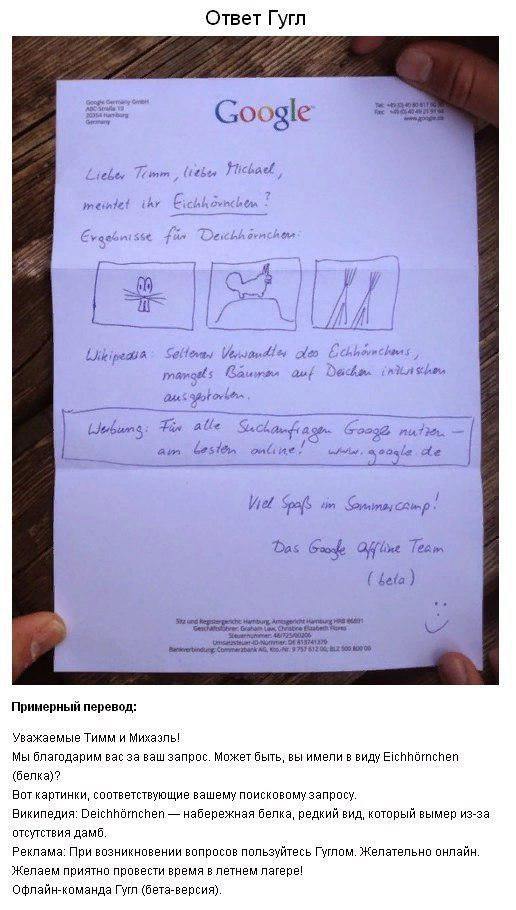 Ответ Гугл
Google Germany GmbH
ABC-Straße 19
20354 Hamburg
Germany
Google
www.google.de
Lieber Timm, lieber Michael,
meintet ihr Eichhörnchen?
Ergebnisse für Deichhörnchen:
Wikipedia: Seltener Verwandter des Eichhörnchens,
mangels Bäumen auf Deichen inzwischen
ausgestorben.
Werbung: Für alle Suchanfragen Google nutzen –
am besten online! www.google.de
Viel Spaß im Sommercamp!
Das Google Offline Team
(beta)
Sitz und Registergericht: Hamburg, Amtsgericht Hamburg HRB 86891
Geschäftsführer: Graham Law, Christine Elizabeth Flores
Steuernummer: 48/725/00206
Umsatzsteuer-ID-Nummer: DE 813741370
Bankverbindung: Commerzbank AG, Kto.-Nr. 9 757 612 00, BLZ 500 800 00
Примерный перевод:
Уважаемые Тимм и Михаэль!
Мы благодарим вас за ваш запрос. Может быть, вы имели в виду Eichhörnchen
(белка)?
Вот картинки, соответствующие вашему поисковому запросу.
Википедия: Deichhörnchen — набережная белка, редкий вид, который вымер из-за
отсутствия дамб.
Реклама: При возникновении вопросов пользуйтесь Гуглом. Желательно онлайн.
Желаем приятно провести время в летнем лагере!
Офлайн-команда Гугл (бета-версия).